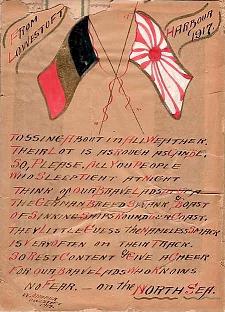 FROM LOWESTOFT
HARBOUR 1917.
TOSSING ABOUT IN ALL WEATHER.
THEIR LOT IS AS ROUGH AS CAN BE,
SO, PLEASE, ALL YOU PEOPLE
WHO SLEEP TIGHT AT NIGHT
THINK OF OUR BRAVE LADS AT SEA
THE GERMAN BREED SWANK & BOAST
OF SINKING SHIPS ROUND OUR COAST.
THEY LITTLE GUESS THE NAMELESS SMACK
IS VERY OFTEN ON THEIR TRACK.
SO REST CONTENT & GIVE A CHEER
FOR OUR BRAVE LADS WHO KNOWS
NO FEAR. — ON THE NORTH SEA.